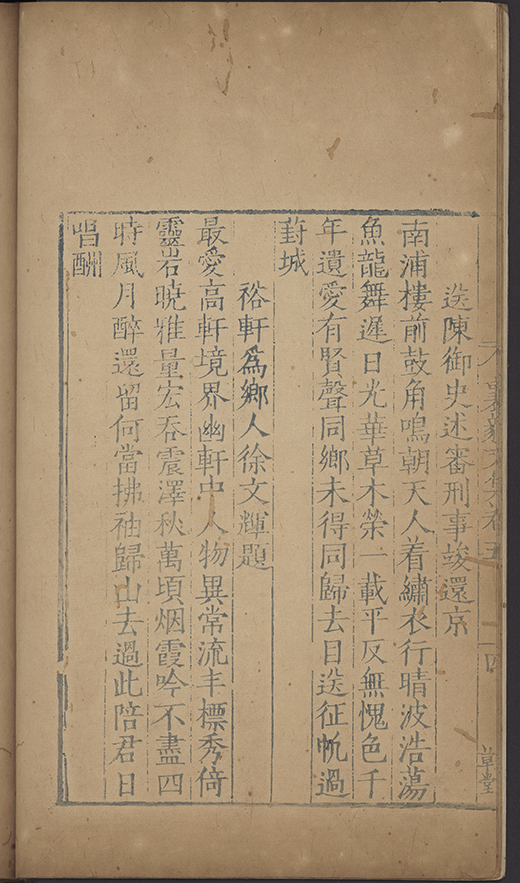 送陳御史述審刑事竣還京
南浦樓前鼓角鳴朝天人着繡衣行晴波浩蕩
魚龍舞遲日光華草木榮一載平反無愧色千
年遺愛有賢聲同鄉未得同歸去日送征帆過
葑城
裕軒為鄉人徐文輝題
最愛高軒境界幽軒中人物異常流丰標秀倚
靈岩曉雅量宏吞震澤秋萬頃烟霞吟不盡四
時風月醉還留何當拂袖歸山去過此陪君日
唱酬
文集卷五
四
草堂